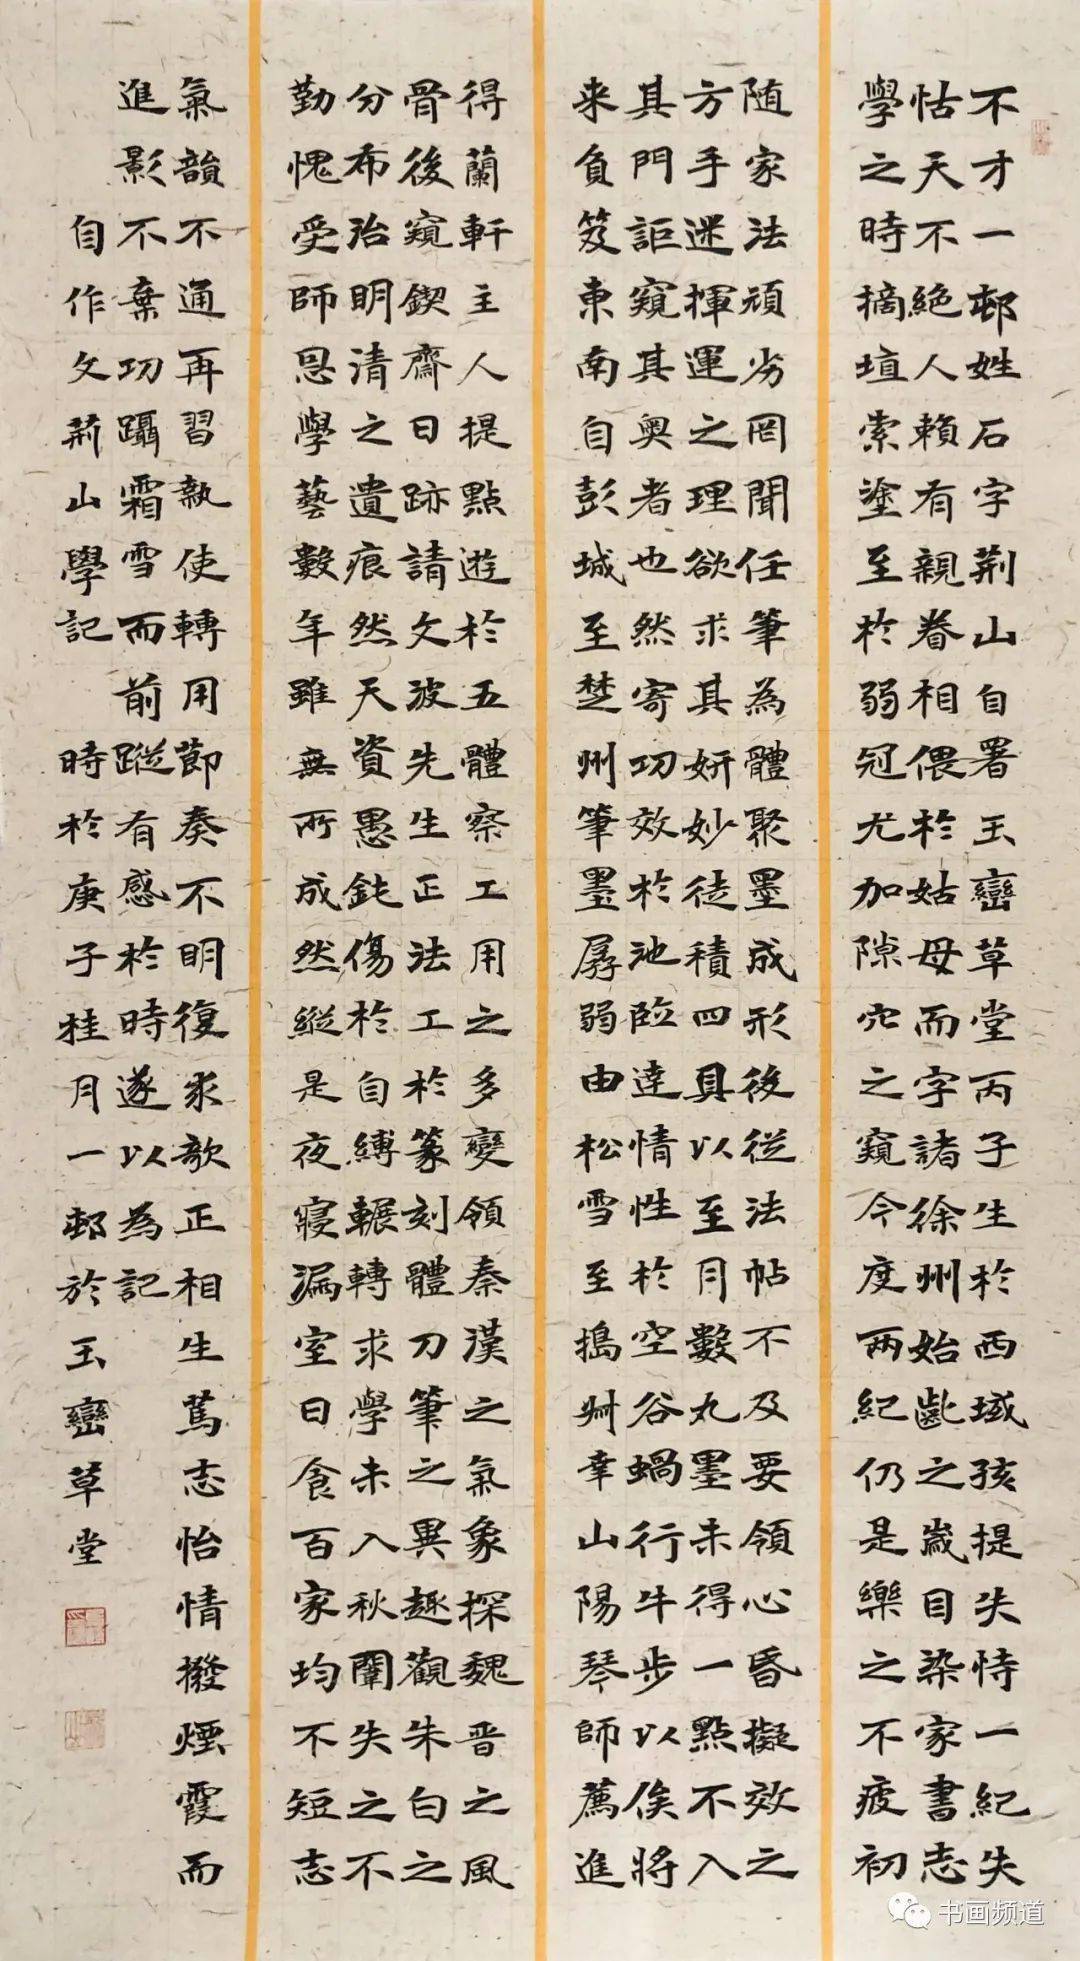 不才一邨姓石字荆山自署玉巒草堂丙子生於西域孩提失恃一紀失
怙天不絶人賴有親眷相偎於姑母而字諸徐州始齔之歲目染家書志
學之時摘埴索塗至於弱冠尤加隙穴之窺今度兩紀仍是樂之不疲初
随家法頑劣罔聞任筆為體聚墨成形後從法帖不及要領心昏擬效之
方手迷揮運之理欲求其妍妙徒積四具以至月數丸墨未得一點不入
其門詎窺其奥者也然寄功效於池臨達情性於空谷蝸行牛步以俟將
来負笈東南自彭城至楚州筆墨孱弱由松雪至搗艸幸山陽琴師薦進
得蘭軒主人提點遊於五體察工用之多變領秦漢之氣象探魏晋之風
骨後窺鍥齋日跡請文波先生正法工於篆刻體刀筆之異趣觀朱白之
分布治明清之遺痕然天資愚鈍傷於自縛輾轉求學未入秋闈失之不
勤愧受師恩學藝數年雖無所成然縱是夜寝漏室日食百家均不短志
氣韻不通再習執使轉用節奏不明復求欹正相生篤志怡情撥煙霞而
進影不棄功躡霜雪而前蹤有感於時遂以為記
自作文荊山學記 時於庚子桂月一邨於玉巒草堂
书画频道